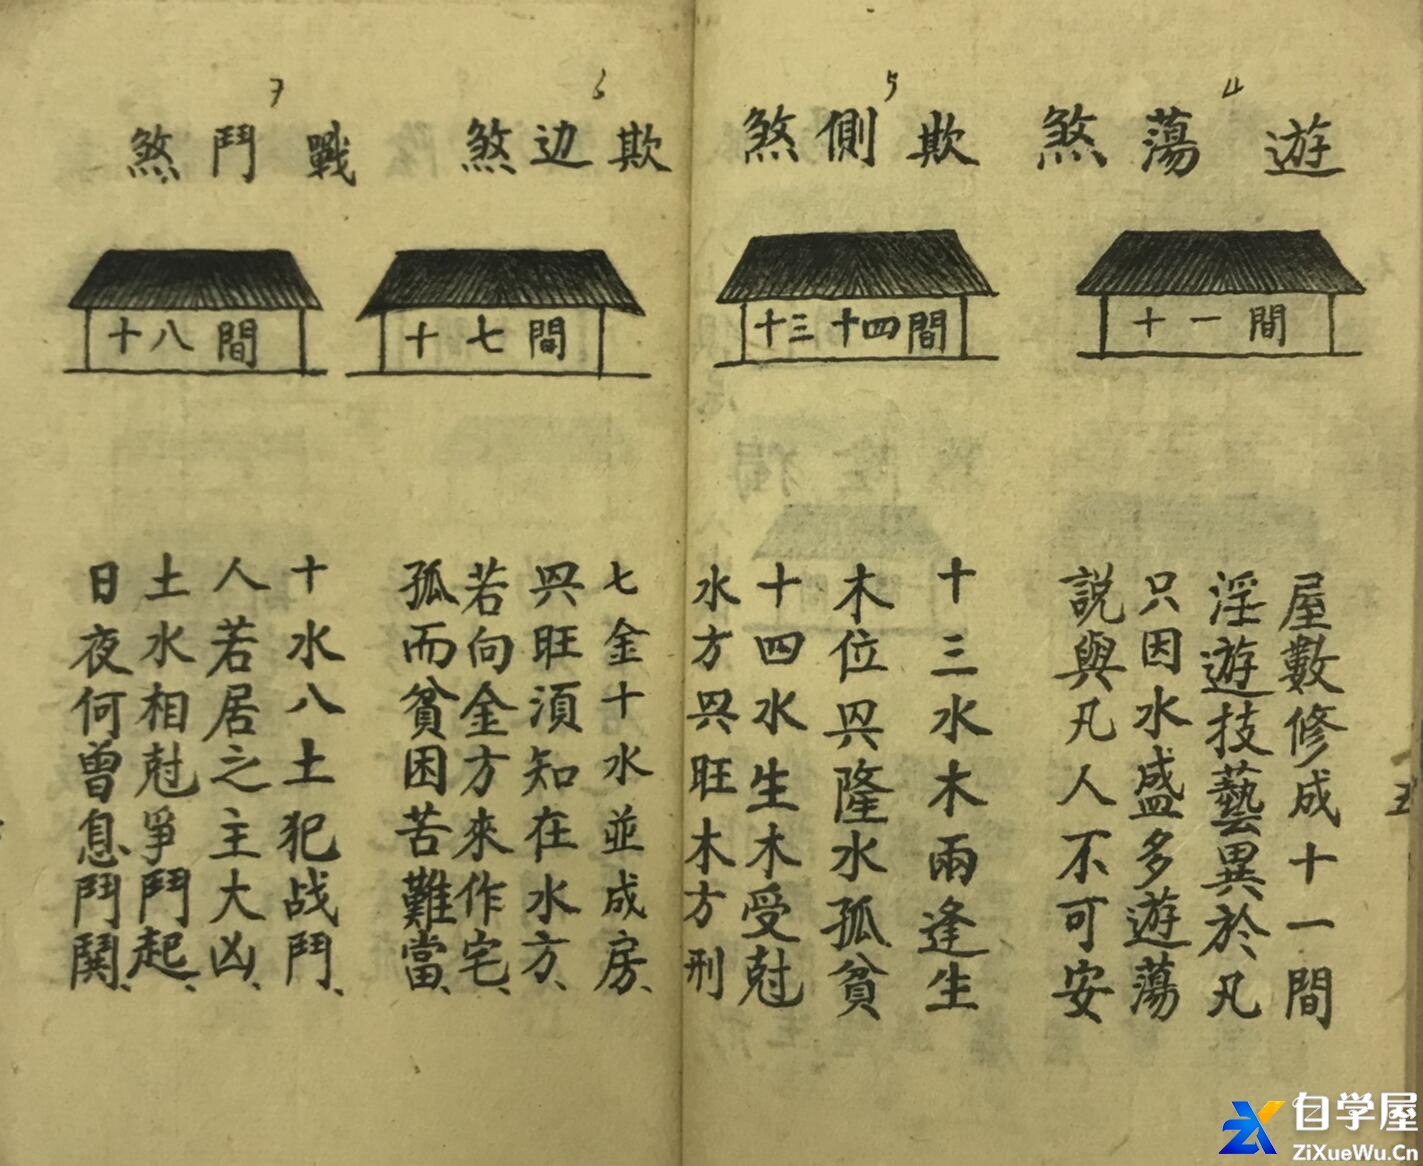 4
遊蕩煞
十一間
屋數修成十一間
淫遊技藝異於凡
只因水盛多遊蕩
説與凡人不可安
5
欺側煞
十三十四間
十三水木兩逢生
木位興隆水孤貧
十四水生木受尅
水方興旺木方刑
6
欺边煞
十七間
七金十水並成房、
興旺須知在水方、
若向金方來作宅、
孤而貧困苦難當、
7
戰鬥煞
十八間
十水八土犯战鬥、
人若居之主大凶、
土水相尅爭鬥起、
日夜何曾息鬥鬨、
自学屋
ZiXueWu.Cn